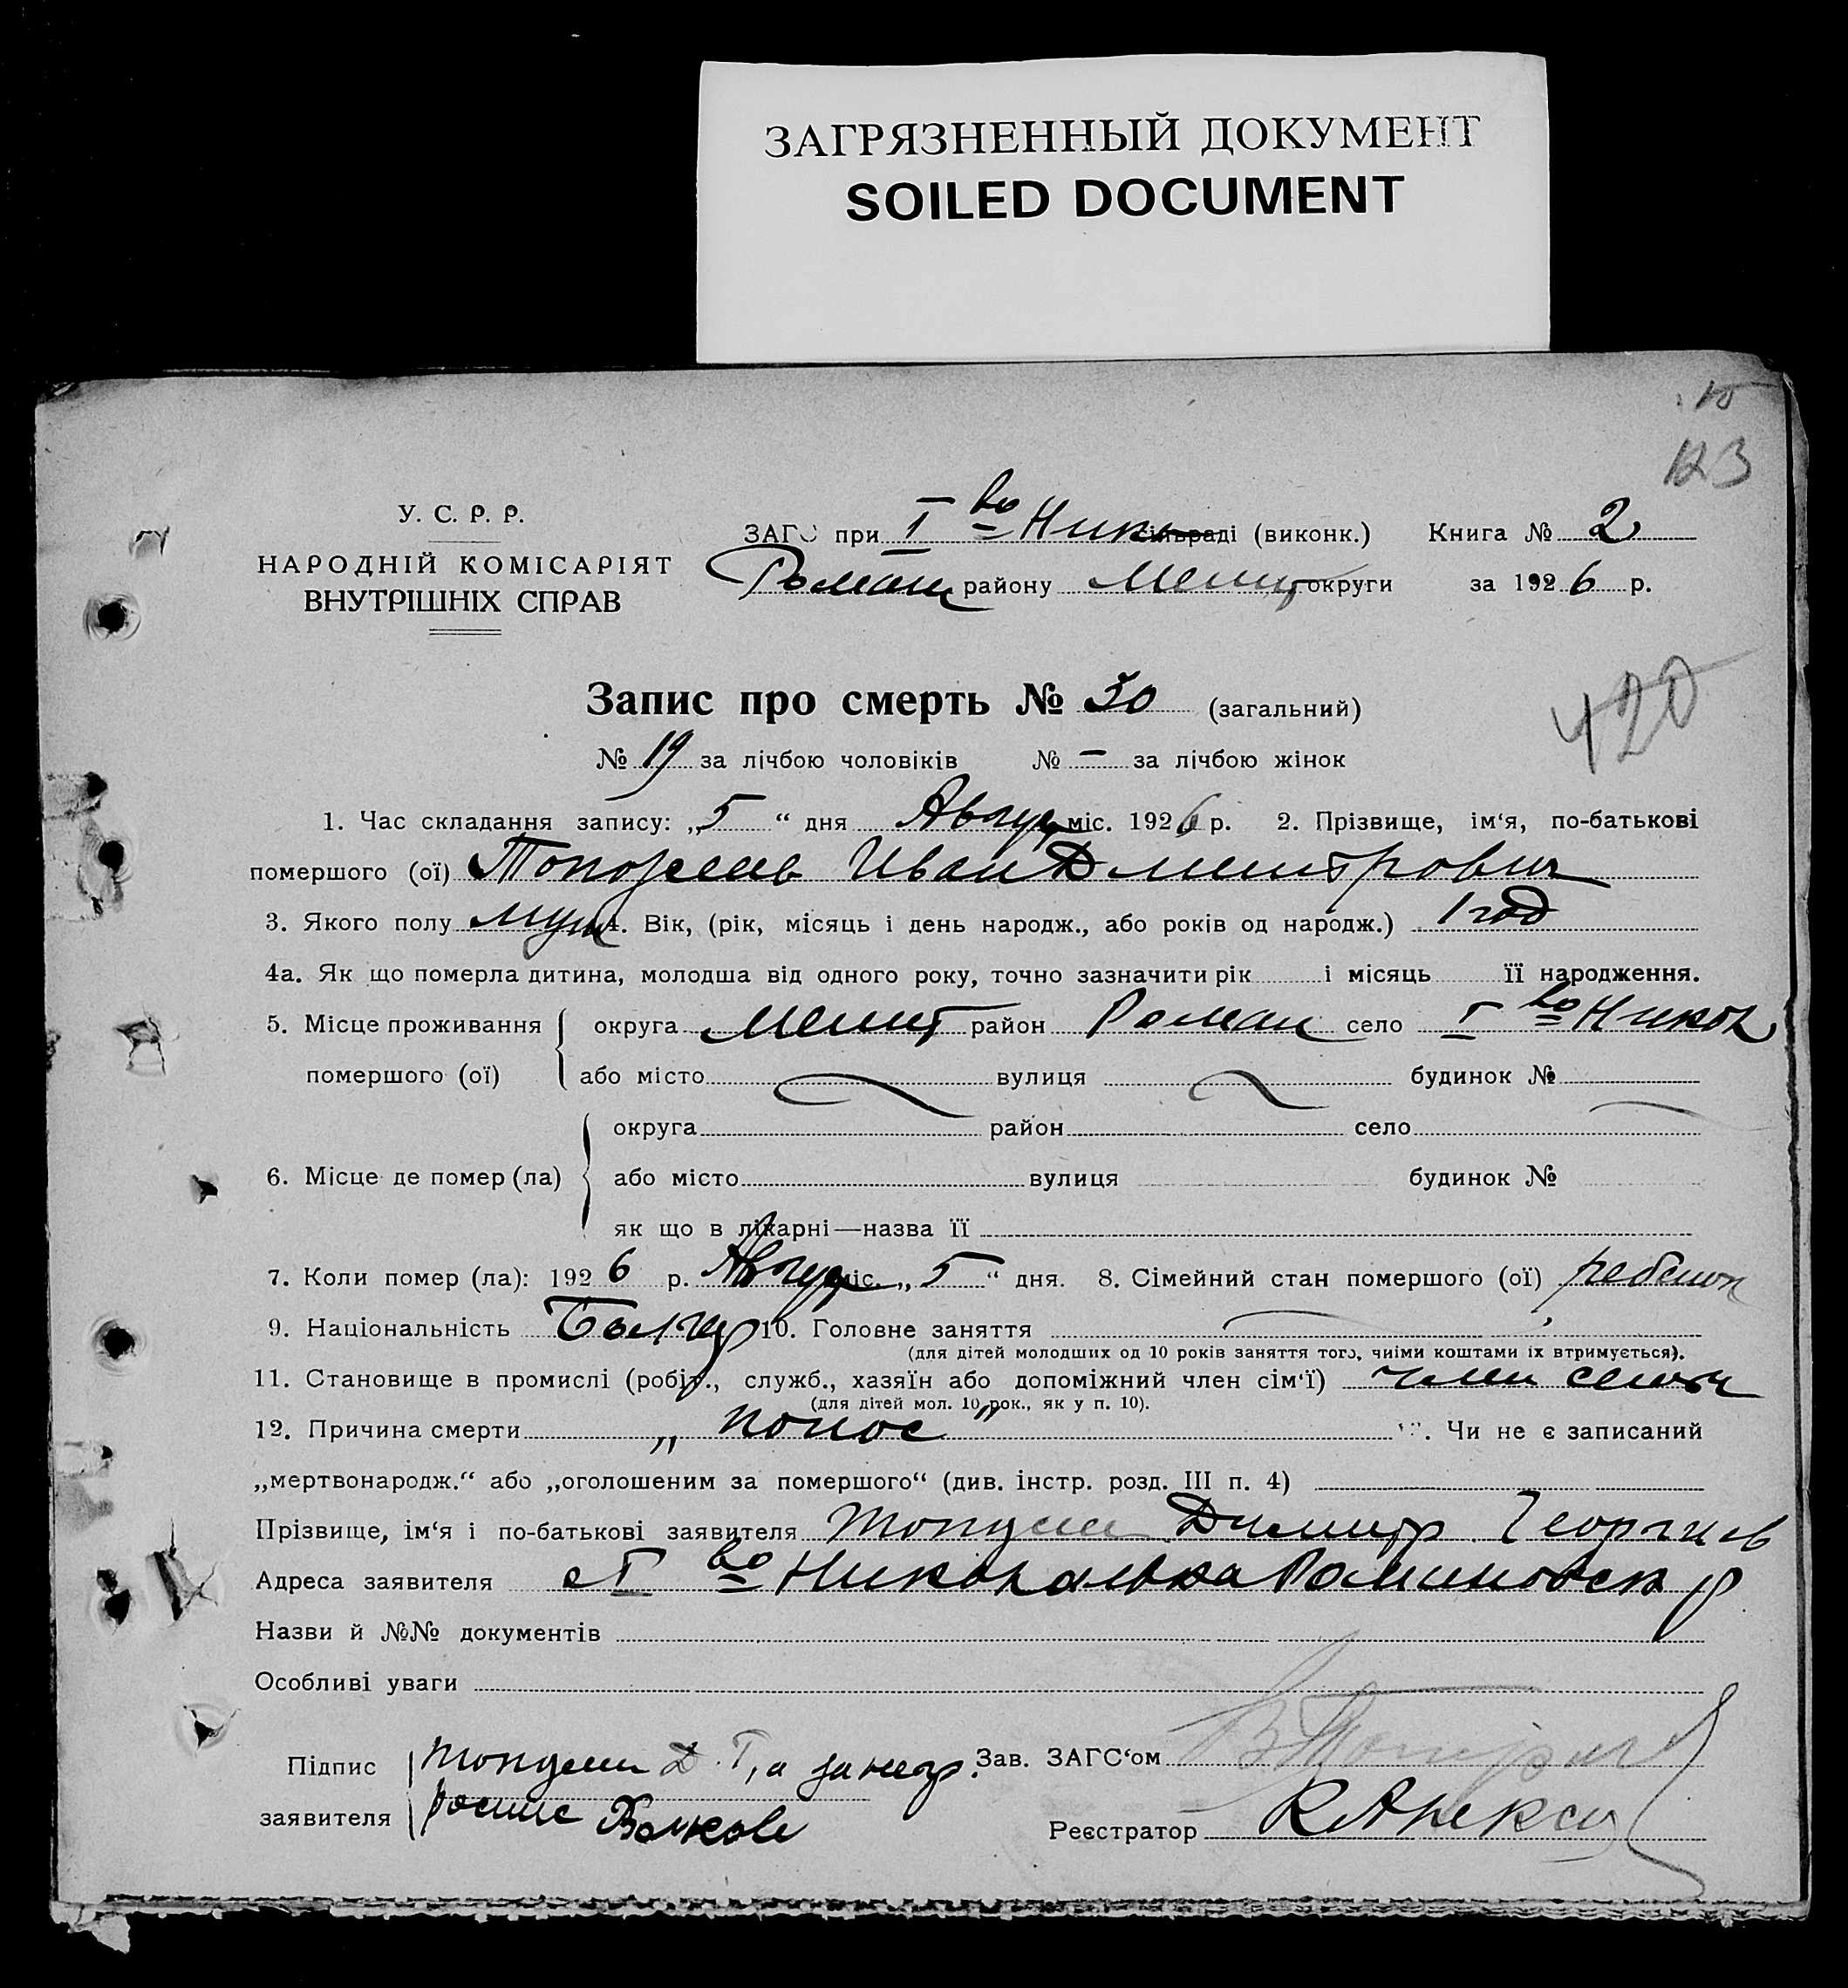 ЗАГРЯЗНЕННЫЙ ДОКУМЕНТ
SOILED DOCUMENT
123
У. С. Р. Р.
НАРОДНІЙ КОМІСАРІЯТ
ВНУТРІШНІХ СПРАВ
ЗАГС при I во Ник сільраді (виконк.) Книга № 2
Роман району Мелит округи за 1926 р.
Запис про смерть № 30 (загальний)
420
№ 19 за лічбою чоловіків № — за лічбою жінок
1. Час складання запису: „5“ дня Август міс. 1926 р. 2. Прізвище, ім‘я, по-батькові
помершого (ої) Иван Дмитрович
3. Якого полу муж 4. Вік, (рік, місяць і день народж., або років од народж.) 1 год
4а. Як що померла дитина, молодша від одного року, точно зазначити рік і місяць її народження.
5. Місце проживання округа Мелит район Роман село I во Никол
помершого (ої) або місто вулиця будинок №
округа район село
6. Місце де помер (ла) або місто вулиця будинок №
як що в лікарні—назва її
7. Коли помер (ла): 1926 р. Август міс. „5“ дня. 8. Сімейний стан помершого (ої) ребенок
9. Національність Болгар 10. Головне заняття
(для дітей молодших од 10 років заняття того, чиїми коштами їх втримується).
11. Становище в промислі (робіт., служб., хазяїн або допоміжний член сім‘ї) член семьи
(для дітей мол. 10 рок., як у п. 10).
12. Причина смерти „понос“ 13. Чи не є записаний
„мертвонародж.“ або „оголошеним за помершого“ (див. інстр. розд. III п. 4)
Прізвище, ім‘я і по-батькові заявителя Димитр Георгиев
Адреса заявителя с I во Николаевка Романовск р
Назви й №№ документів
Особливі уваги
Підпис Д. Г, а за негр. Зав. ЗАГС‘ом
заявителя Реєстратор